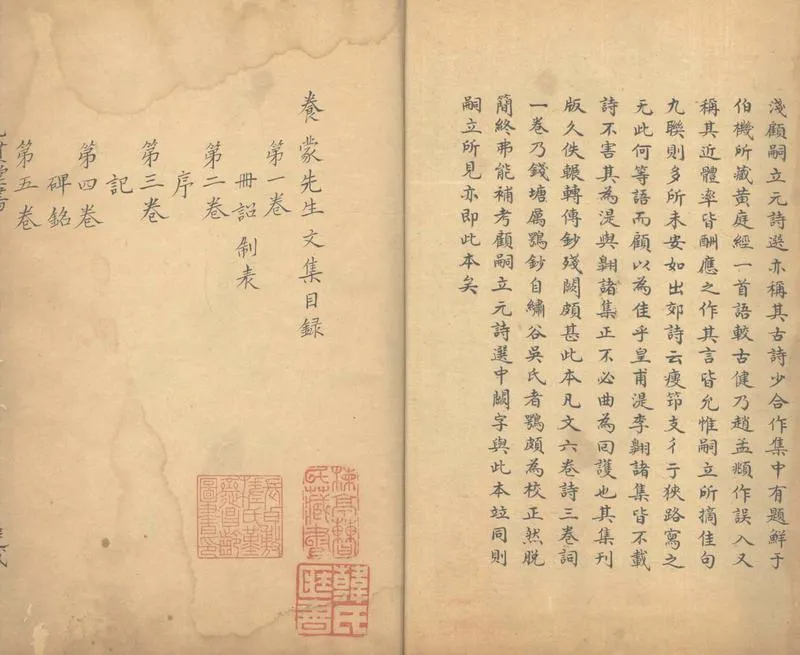 淺顧嗣立元詩選亦稱其古詩少合作集中有題鮮于
伯機所藏黃庭經一首語較古健乃趙孟頫作誤入又
稱其近體率皆酬應之作其言皆允惟嗣立所摘佳句
九聯則多所未安如出郊詩云瘦筇支彳亍狹路寫之
无此何等語而顧以為佳乎皇甫湜李翺諸集皆不載
詩不害其為湜與翺諸集正不必曲為回護也其集刊
版久佚輾轉傳鈔殘闕頗甚此本凡文六卷詩三卷詞
一卷乃錢塘厲鶚鈔自繡谷吳氏者鶚頗為校正然脫
簡終弗能補考顧嗣立元詩選中闕字與此本竝同則
嗣立所見亦即此本矣
養蒙先生文集目録
第一卷
冊詔制表
第二卷
序
第三卷
記
第四卷
碑銘
第五卷
楝亭曹氏藏書
韓氏